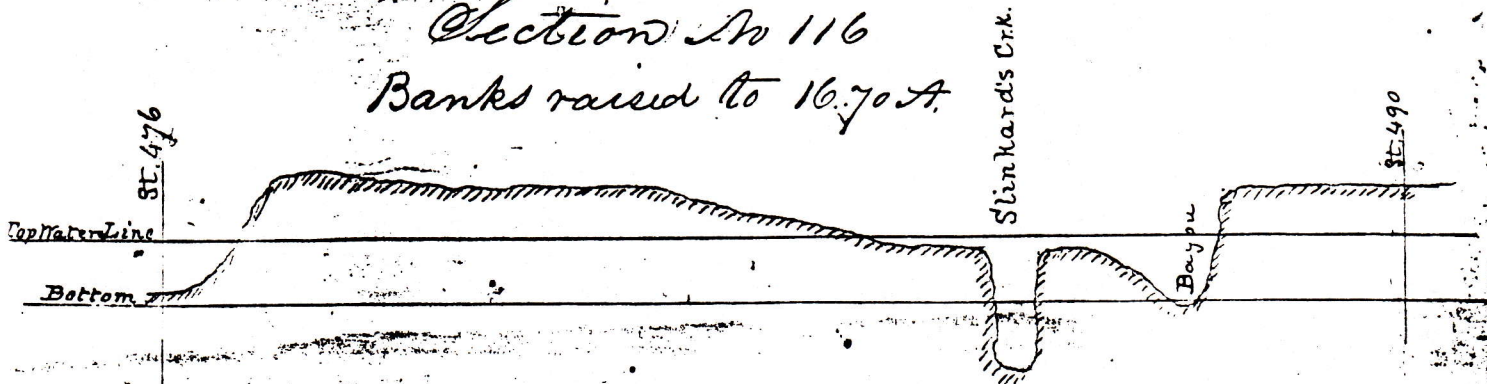 Section No 116
Banks raised to 16.70 ft.
St. 476
Slinkard's Crk.
St. 490
Top Water Line
Bayou
Bottom